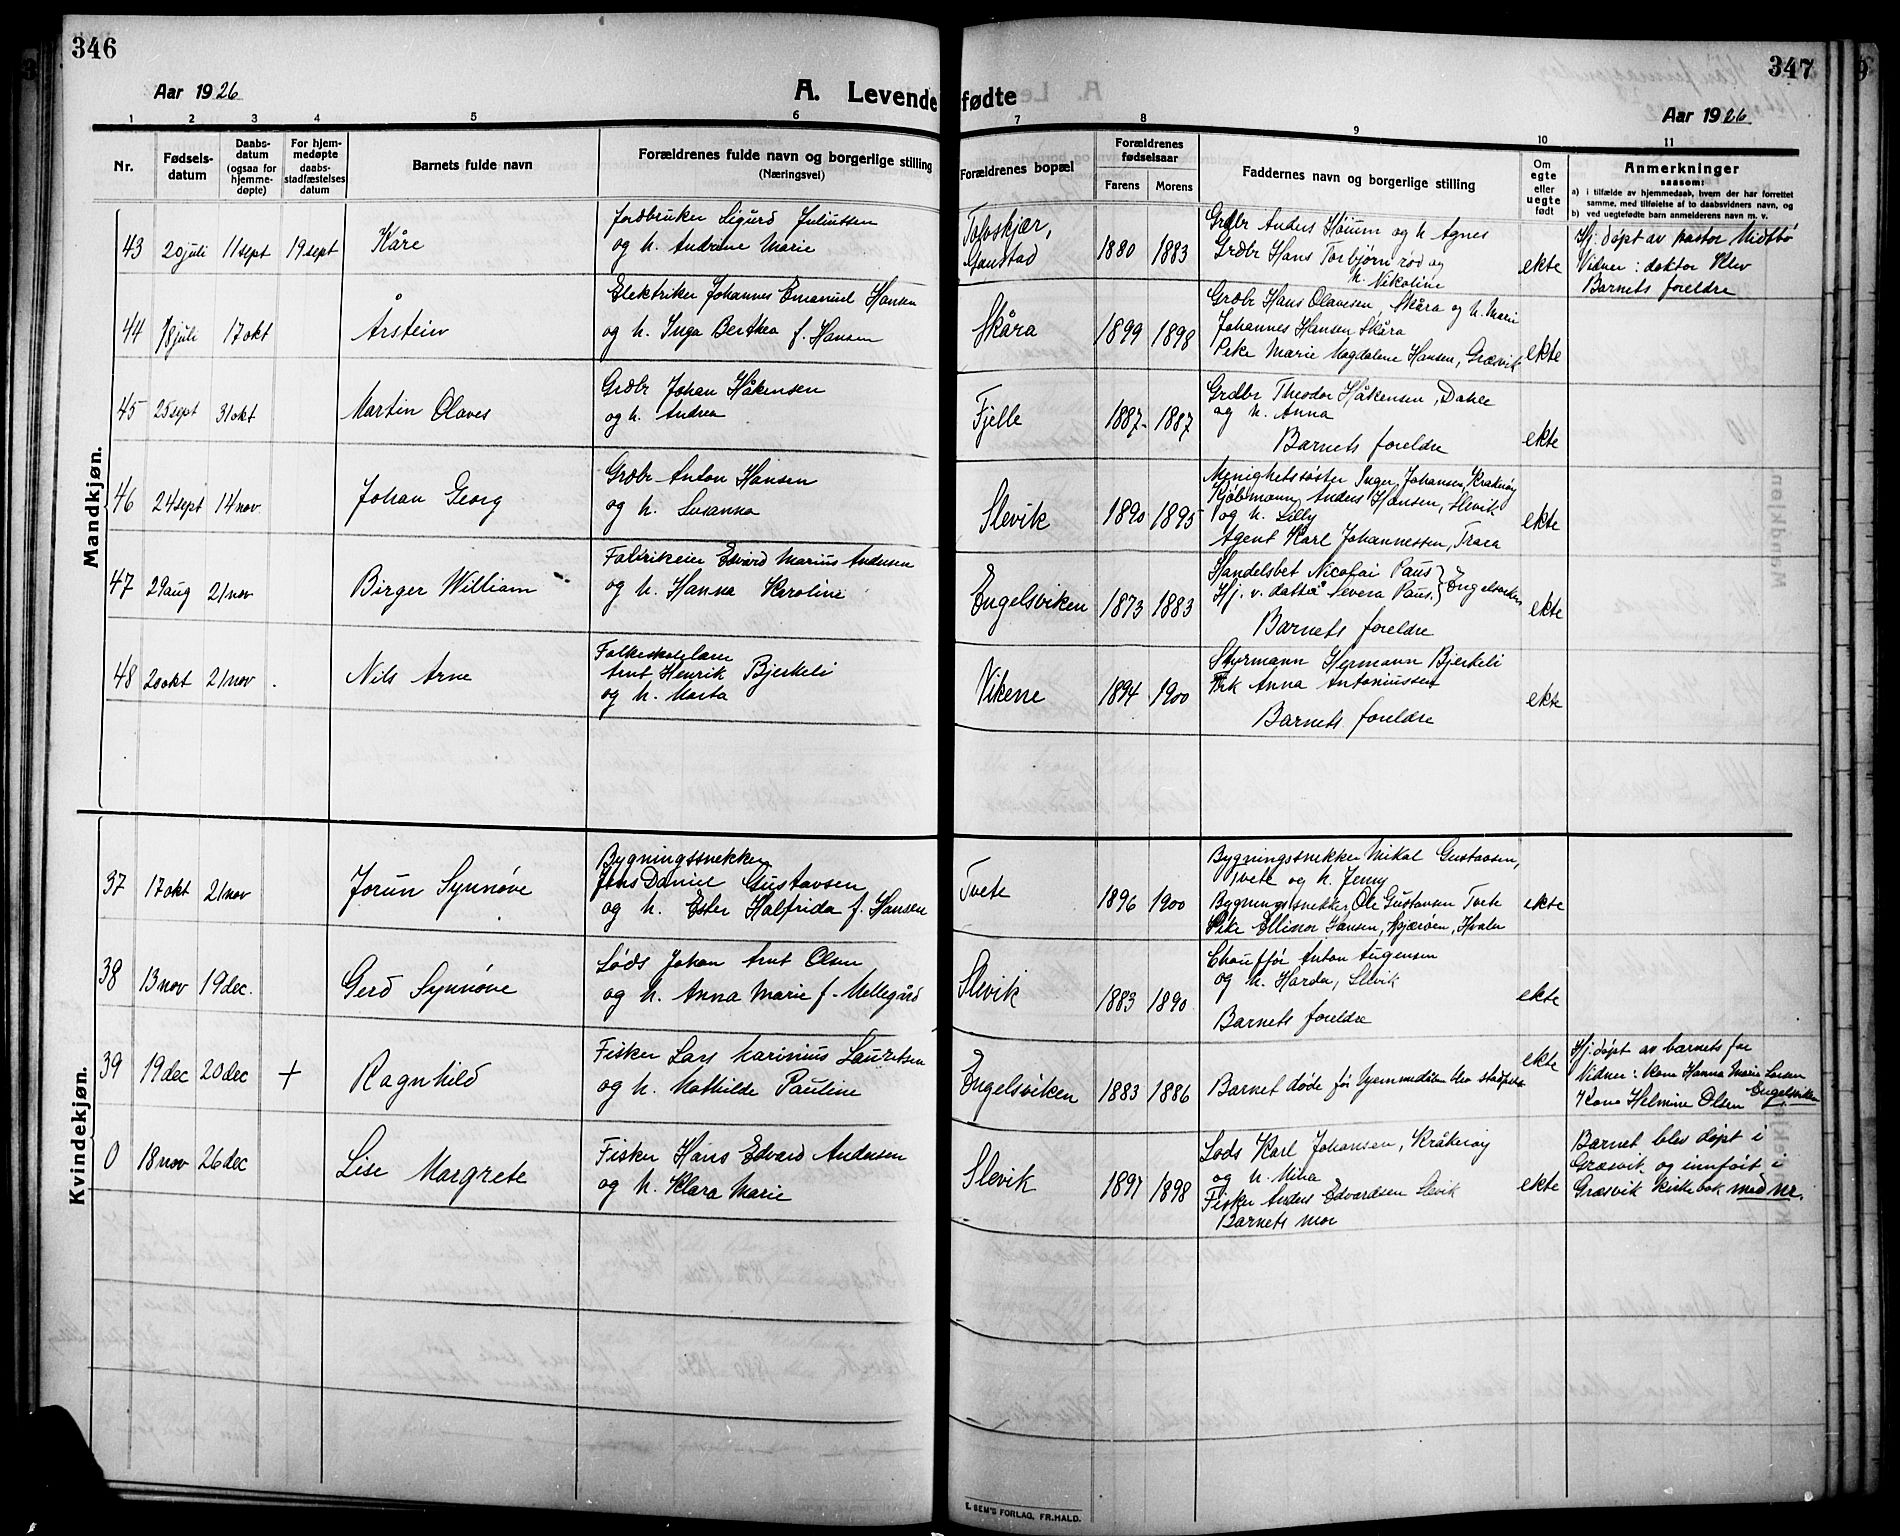 346
Aar 1926
A. Levende
1 2 3 4 5 6
Nr.
Fødsels-
datum
Daabs-
datum
(ogsaa for
hjemme-
døpte)
For hjem-
medøpte
daabs-
stadfæstelses
datum
Barnets fulde navn
Forældrenes fulde navn og borgerlige stilling
(Næringsvei)
Mandkjøn.
43 20 juli 11 sept 19 sept Kåre
Jordbruker Sigurd Juliussen
og h. Andrine Marie
44 18 juli 17 okt Årstein
Elektriker Johannes Emanuel Hansen
og h. Inga Berthea f. Hansen
45 25 sept 31 okt Martin Olaves
Grdbr Johan Håkensen
og h. Andrea
46 24 sept 14 nov. Johan Georg
Grdbr Anton Hansen
og h. Susanna
47 29 aug 21 nov Birger William
Fabrikeier Edvard Marius Andersen
og h. Hanna Karoline
48 20 okt 21 nov. Nils Arne
Folkeskolelærer
Arnt Henrik Bjerkeli
og h. Marta
Kvindekjøn.
37 17 okt 21 nov Jorun Synnøve
Bygningssnekker
Jens Daniel Gustavsen
og h. Ester Halfrida f. Hansen
38 13 nov 19 dec. Gerd Synnøve
Lods Johan Arnt Olsen
og h. Anna Marie f. Mellegård
39 19 dec 20 dec + Ragnhild
Fisker Lars Marinius Lauritsen
og h. Mathilde Pauline
0 18 nov 26 dec Lise Margrete
Fisker Hans Edvard Andersen
og h. Klara Marie
347
fødte
Aar 1926
7 8 9 10 11
Forældrenes bopæl
Forældrenes
fødselsaar
Farens Morens
Faddernes navn og borgerlige stilling
Om
egte
eller
uegte
født
Anmerkninger
saasom:
a) i tilfælde av hjemmedaab, hvem der har forrettet
samme, med tilføielse af to daabsvidners navn, og
b) ved uegtefødte barn anmelderens navn m. v.
1880 1883
Grdbr Anders Høium og h Agnes
Grdbr Hans Torbjørnrød og
h. Nikoline
ekte
Hj. døpt av pastor Midttbø
Vidner: doktor Klev
Barnets foreldre
Skåra 1899 1898
Grdbr Hans Olavesen, Skåra og h. Marie
Johannes Hansen Skåra
Pike Marie Magdalene Hansen, Græsvik
ekte
Fjelle 1887- 1887
Grdbr Theodor Håkensen, Dahle
og h. Anna
Barnets foreldre
ekte
Slevik 1890 1895
Menighetssøster Inger Johansen, Kråkerøy
Kjøbmann Anders Hansen, Slevik
og h. Lilly
Agent Karl Johannessen, Trara
ekte
Engelsviken 1873 1883
Handelsbet Nicolai Paus
Hj. v. datter Severa Paus. } Engelsviken
Barnets foreldre
ekte
Vikene 1894 1900
Styrmann Hermann Bjerkeli
Frk Anna Antoniussen
Barnets foreldre
ekte
Tvete 1896 1900
Bygningssnekker Mikal Gustavsen,
Tvete og h. Jenny
Bygningssnekker Ole Gustavsen Tvete
Pike Ellinor Hansen, Kjærøen, Hvaler
ekte
Slevik 1883 1890
Chauffør Anton Augensen
og h. Harda, Slevik
Barnets foreldre
ekte
Engelsviken 1883 1886
Barnet døde før hjemmedåben blev stadfestet
ekte
Hj. døpt av barnets far
Vidner: Kone Hanna Marie Larsen
Kone Helmine Olsen Engelsviken
Slevik 1897 1898
Lods Karl Johansen, Kråkerøy
og h. Mina
Fisker Anders Edvardsen Slevik
Barnets mor
ekte
Barnet blev døpt i
Græsvik og innført i
Græsvik kirkebok med nr.
E. SEM'S FORLAG, FR.HALD.